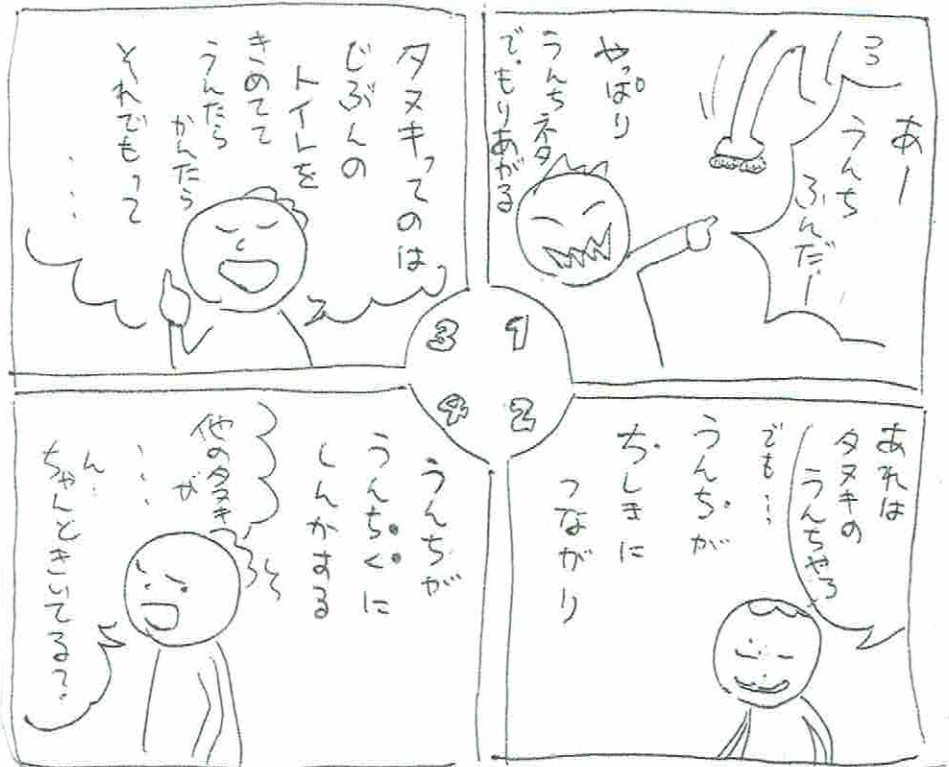 あー
うんち
ふんだー
やっぱり
うんちネタ
で、もりあがる
1
あれは
タヌキの
うんちやろ
でも・・・
うんちが
ちしきに
つながり
2
タヌキってのは
じぶんの
トイレを
きめてて
うんたら
かんたら
それでもって
・・・
3
うんちが
うんちくに
しんかする
他のタヌキ
が
・・・
ん・・
ちゃんときいてる？
4